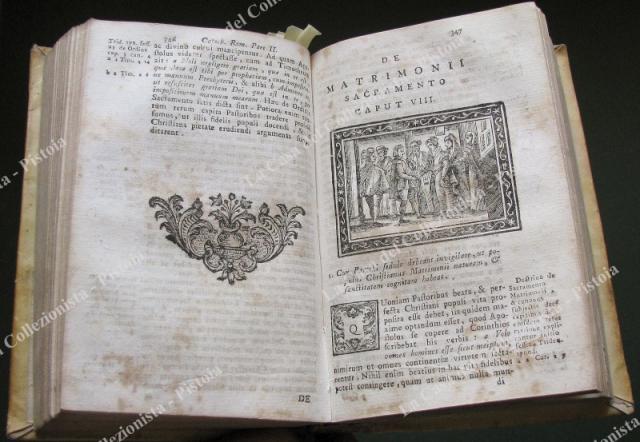 346
Catech. Rom. Pars II.
ac divino cultui mancipentur. Ad quam Apo-
stolus videtur spectasse, cum ad Timotheum
ait: a Noli negligere gratiam, quæ in te est,
quæ data est tibi per prophetiam, cum impositio-
ne manuum Presbyterii, & alibi b Admoneo te,
ut resuscites gratiam Dei, quæ est in te per
impositionem manuum mearum. Hæc de Ordinis
Sacramento satis dicta sint. Potiora enim tan-
tum rerum capita Pastoribus tradere professi
sumus, ut illis fidelis populi docendi, & in
Christiana pietate erudiendi argumenta suppe-
ditarent.
a 1 Tim. 4. 14
b 2 Tim.
DE
347
DE
MATRIMONII
SACRAMENTO
CAPUT VIII.
1. Cur Parochi sedulo debeant invigilare, ut po-
pulus Christianus Matrimonii naturam, &
sanctitatem cognitam habeat.
QUoniam Pastoribus beata, & per-
fecta Christiani populi vita pro-
posita esse debet, iis quidem ma-
xime optandum esset, quod Apo-
stolus se cupere ad Corinthios
scribebat his verbis: a Volo
omnes homines esse sicut meipsum,
nimirum ut omnes continentiæ virtutem secta-
rentur. Nihil enim beatius in hac vita fidelibus
potest contingere, quam ut animus nulla mun-
di
Doctrina de
Sacramento
Matrimonii
La Casa del Collezionista - Pistoia